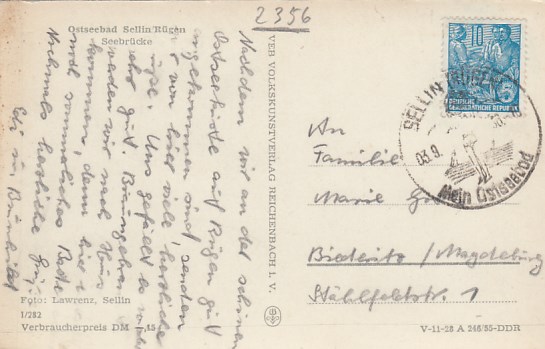 2356
Ostseebad Sellin/Rügen
Seebrücke
Nachdem wir an der schönen
Ostseeküste auf Rügen gut
angekommen sind, senden
wir von hier viele herzliche
Grüße. Uns gefällt es
sehr gut. Braungebrannt
werden wir nach Haus
kommen, denn hier
mal sommerliches
Nochmals herzliche
Foto: Lawrenz, Sellin
I/282
Verbraucherpreis DM -,15
VEB VOLKSKUNSTVERLAG REICHENBACH I. V.
10
DEUTSCHE
DEMOKRATISCHE REPUBLIK
SELLIN (RÜGEN)
03.9.
Mein Ostseebad
An
Familie
Biederitz / Magdeburg
1
V-11-28 A 246/55-DDR